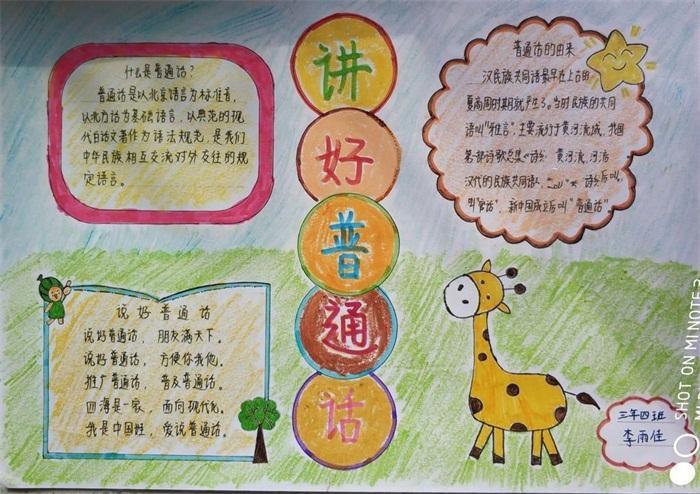 讲
好
普
通
话
什么是普通话?
普通话是以北京语言为标准音,
以北方话为基础语言,以典范的现
代白话文著作为语法规范,是我们
中华民族相互交流对外交往的规
定语言。
普通话的由来
汉民族共同语最早在上古的
夏商周时期就产生了。当时民族的共同
语叫"雅言",主要流行于黄河流域,我国
第一部诗歌总集《诗》 黄河流,河洛
汉代的民族共同语
叫"官话",新中国成立后叫"普通话"。
说好普通话
说好普通话,朋友满天下。
说好普通话,方便你我他。
推广普通话,普及普通话。
四海是一家,面向现代化。
我是中国娃,爱说普通话。
三年四班
李雨佳
SHOT ON MI NOTE 3